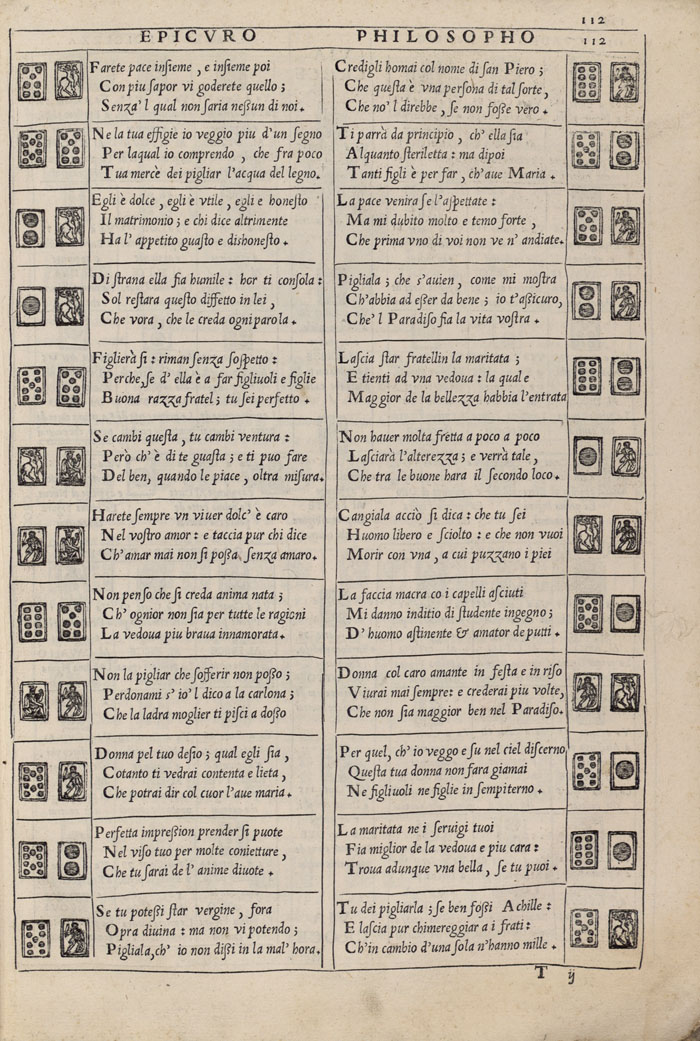 112
EPICVRO PHILOSOPHO 112
Farete pace insieme, e insieme poi
Con piu sapor vi goderete quello;
Senza'l qual non saria neßun di noi.
Ne la tua effigie io veggio piu d'un segno
Per laqual io comprendo, che fra poco
Tua mercè dei pigliar l'acqua del legno.
Egli è dolce, egli è vtile, egli e honesto
Il matrimonio; e chi dice altrimente
Ha l'appetito guasto e dishonesto.
Di strana ella fia humile: hor ti consola:
Sol restara questo diffetto in lei,
Che vora, che le creda ogni parola.
Figlierà si: riman senza sospetto:
Perche, se d'ella è a far figliuoli e figlie
Buona razza fratel; tu sei perfetto.
Se cambi questa, tu cambi ventura:
Però ch'è di te guasta; e ti puo fare
Del ben, quando le piace, oltra misura.
Harete sempre vn viuer dolc'è caro
Nel vostro amor: e taccia pur chi dice
Ch'amar mai non si poßa senza amaro.
Non penso che si creda anima nata;
Ch'ognior non sia per tutte le ragioni
La vedoua piu braua innamorata.
Non la pigliar che sofferir non poßo;
Perdonami s'io'l dico a la carlona;
Che la ladra moglier ti pisci a doßo
Donna pel tuo desio; qual egli sia,
Cotanto ti vedrai contenta e lieta,
Che potrai dir col cuor l'aue maria.
Perfetta impreßion prender si puote
Nel viso tuo per molte conietture,
Che tu sarai de l'anime diuote.
Se tu poteßi star vergine, fora
Opra diuina: ma non vi potendo;
Pigliala, ch'io non dißi in la mal'hora.
Credigli homai col nome di san Piero;
Che questa è vna persona di tal sorte,
Che no'l direbbe, se non foße vero.
Ti parrà da principio, ch'ella sia
Alquanto steriletta: ma dipoi
Tanti figli è per far, ch'aue Maria.
La pace venira se l'aspettate:
Ma mi dubito molto e temo forte,
Che prima vno di voi non ve n'andiate.
Pigliala; che s'auien, come mi mostra
Ch'abbia ad eßer da bene; io t'aßicuro,
Che'l Paradiso fia la vita vostra.
Lascia star fratellin la maritata;
E tienti ad vna vedoua: la qual e
Maggior de la bellezza habbia l'entrata
Non hauer molta fretta a poco a poco
Lasciarà l'alterezza; e verrà tale,
Che tra le buone hara il secondo loco.
Cangiala acciò si dica: che tu sei
Huomo libero e sciolto: e che non vuoi
Morir con vna, a cui puzzano i piei
La faccia macra co i capelli asciuti
Mi danno inditio di studente ingegno;
D'huomo astinente & amator de putti.
Donna col caro amante in festa e in riso
Viurai mai sempre: e crederai piu volte,
Che non sia maggior ben nel Paradiso.
Per quel, ch'io veggo e su nel ciel discerno
Questa tua donna non fara giamai
Ne figliuoli ne figlie in sempiterno.
La maritata ne i seruigi tuoi
Fia miglior de la vedoua e piu cara:
Troua adunque vna bella, se tu puoi.
Tu dei pigliarla; se ben foßi Achille:
E lascia pur chimereggiar a i frati:
Ch'in cambio d'una sola n'hanno mille.
T ij